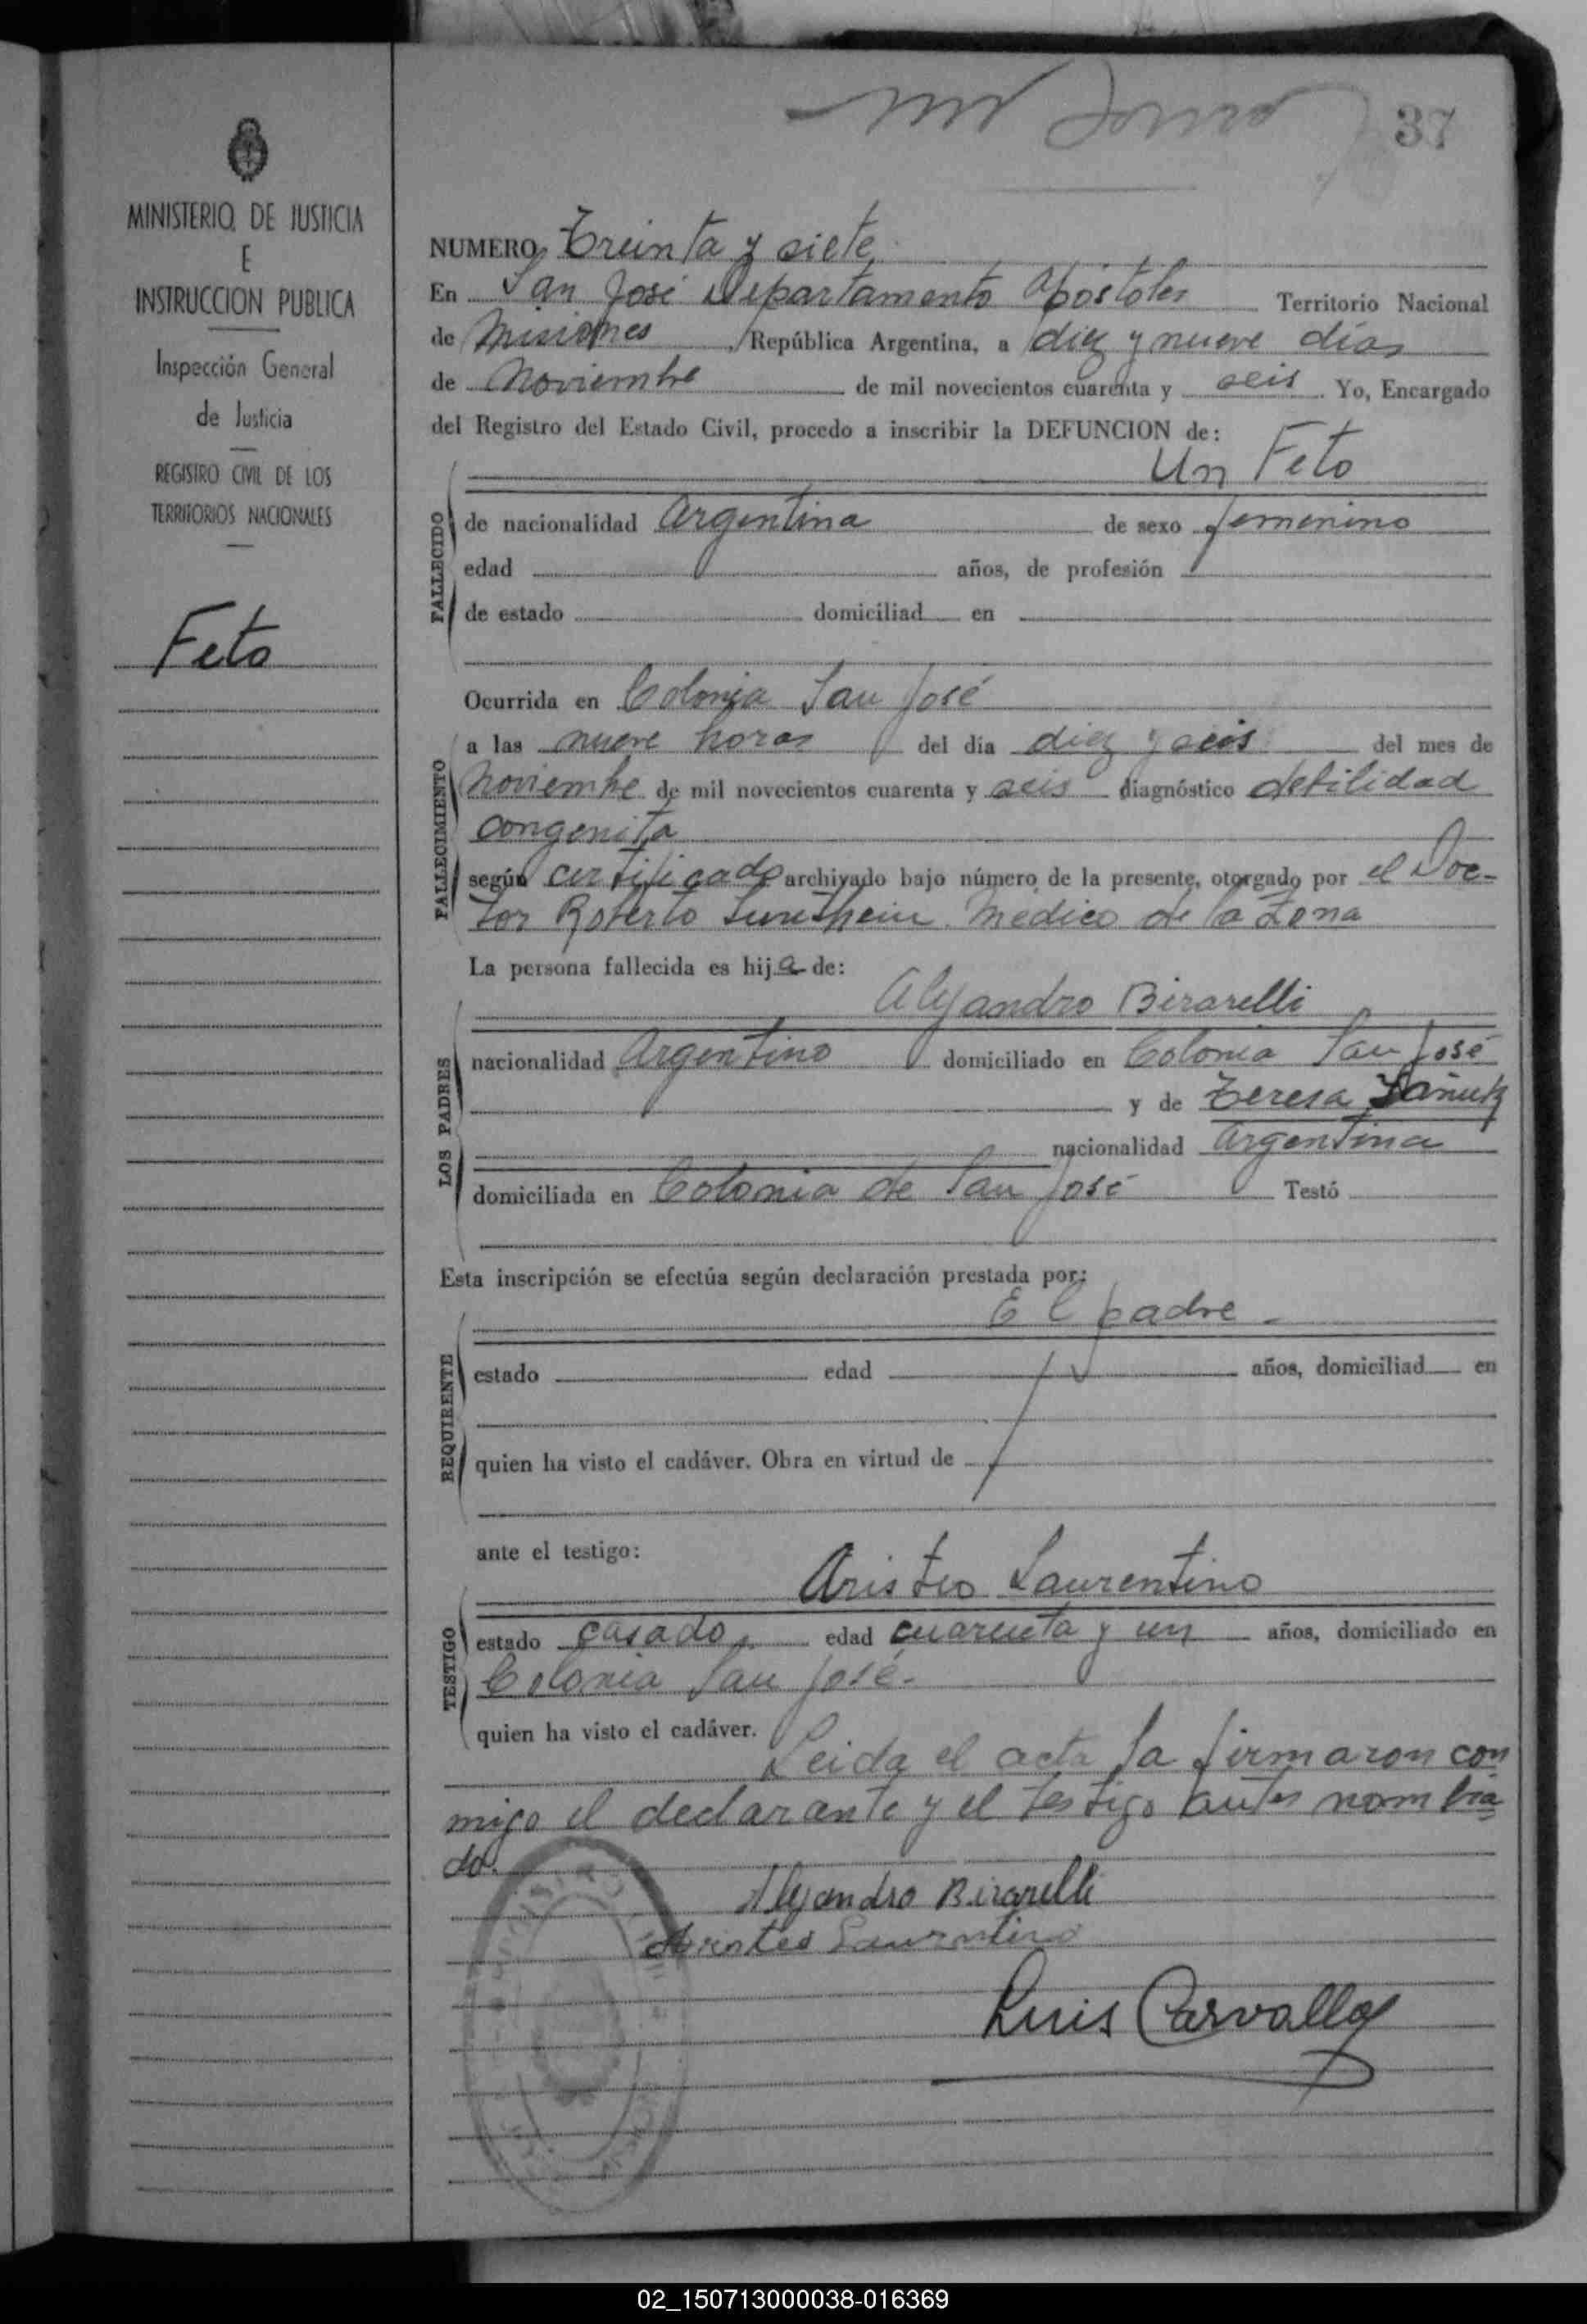 37
MINISTERIO DE JUSTICIA
E
INSTRUCCION PUBLICA
Inspección General
de Justicia
REGISTRO CIVIL DE LOS
TERRITORIOS NACIONALES
Feto
NUMERO Treinta y siete
En San José Departamento Apóstoles Territorio Nacional
de Misiones, República Argentina, a diez y nueve días
de Noviembre de mil novecientos cuarenta y seis. Yo, Encargado
del Registro del Estado Civil, procedo a inscribir la DEFUNCION de:
Un Feto
FALLECIDO
de nacionalidad Argentina de sexo femenino
edad años, de profesión
de estado domiciliad en
FALLECIMIENTO
Ocurrida en Colonia San José
a las nueve horas del día diez y seis del mes de
Noviembre de mil novecientos cuarenta y seis diagnóstico debilidad
congenita
según certificado archivado bajo número de la presente, otorgado por el Doc-
tor Roberto Médico de la Zona
La persona fallecida es hija de:
LOS PADRES
Alejandro Birarelli
nacionalidad Argentino domiciliado en Colonia San José
y de Teresa
nacionalidad Argentina
domiciliada en Colonia de San José Testó
Esta inscripción se efectúa según declaración prestada por:
REQUIRENTE
El padre -
estado edad años, domiciliad en
quien ha visto el cadáver. Obra en virtud de
ante el testigo:
TESTIGO
Aristeo Laurentino
estado casado edad cuarenta y un años, domiciliado en
Colonia San José.-
quien ha visto el cadáver.
Leida el acta la firmaron con
migo el declarante y el testigo antes nombra
do.
Alejandro Birarelli
Aristeo Laurentino
Luis Carvallo
02_150713000038-016369